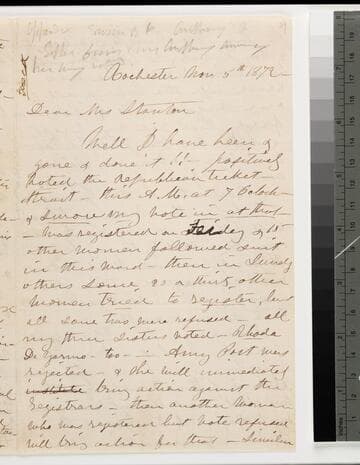 Rochester Nov 5th 1872
Dear Mrs Stanton
Well I have been &
gone & done it!! - positively
voted the republican ticket -
strait - this A.M. at 7 Oclock -
& swore my vote in at that -
- was registered on Friday & 15
other women followed suit
in this ward - then in Sundry
others some 20 or thirty other
women tried to register, but
all save two were refused - all
my three sisters voted - Rhoda
De Garmo too - Amy Post was
rejected - & she will immediately
institute bring action against the
registrars - then another woman
who was registered but vote refused
will bring action for that - Similar